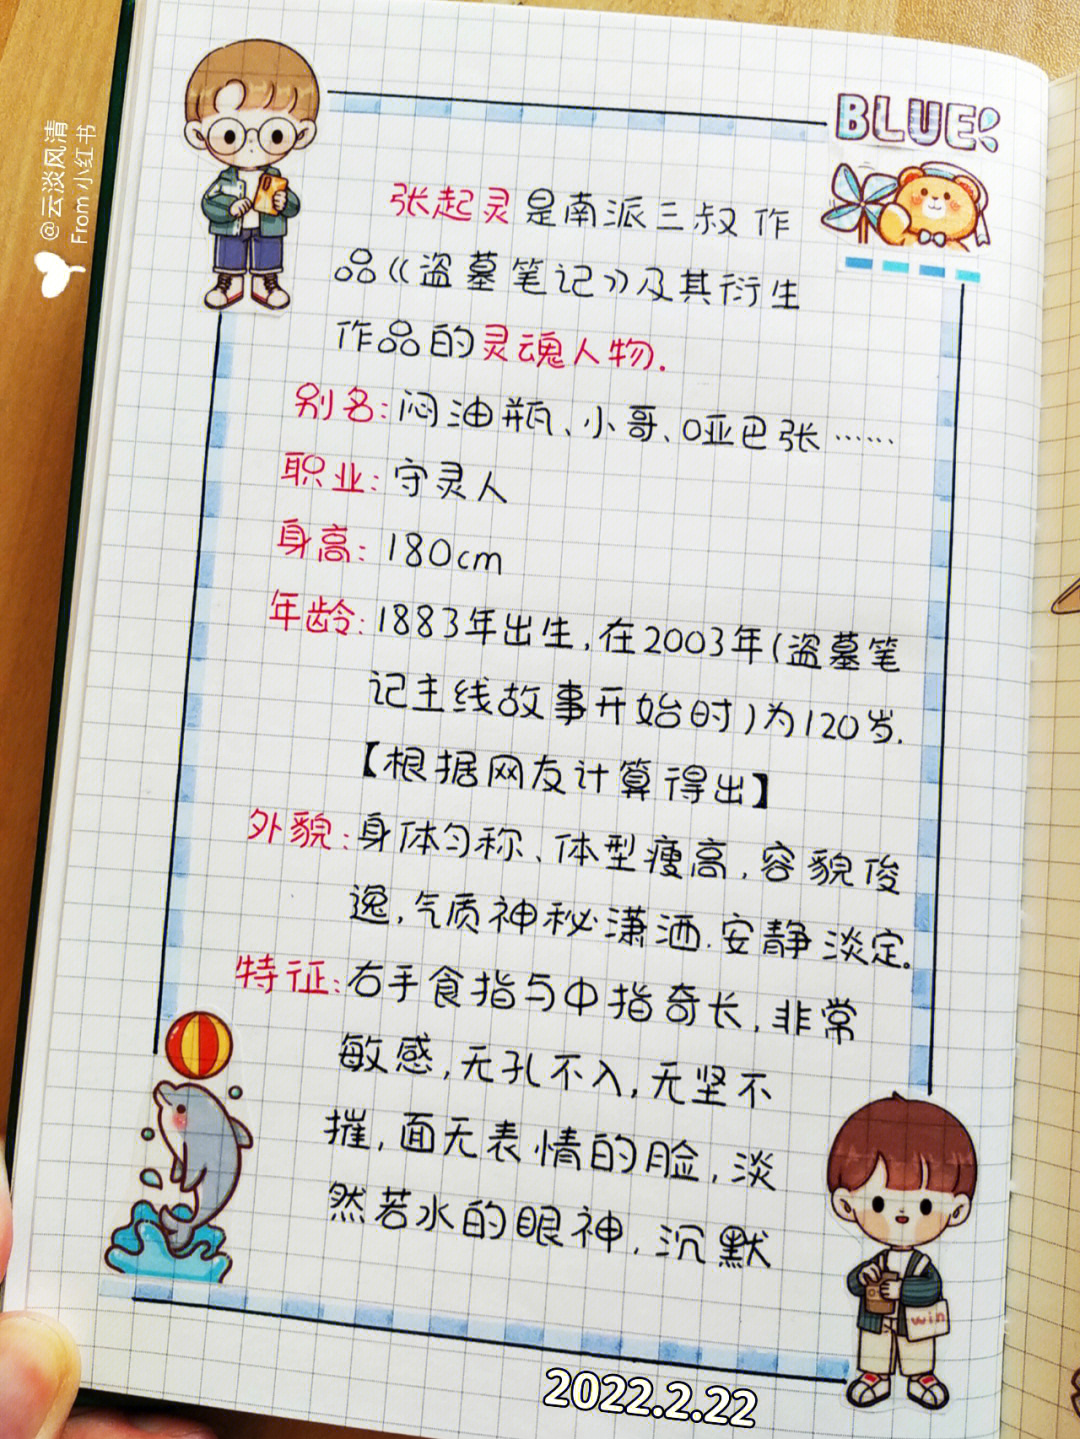 @云淡风清
From 小红书
BLUE
张起灵是南派三叔作
品《盗墓笔记》及其衍生
作品的灵魂人物.
别名:闷油瓶、小哥、哑巴张……
职业:守灵人
身高:180cm
年龄:1883年出生,在2003年(盗墓笔
记主线故事开始时)为120岁.
【根据网友计算得出】
外貌:身体匀称、体型瘦高,容貌俊
逸,气质神秘潇洒.安静淡定。
特征:右手食指与中指奇长,非常
敏感,无孔不入,无坚不
摧,面无表情的脸,淡
然若水的眼神,沉默
win
2022.2.22